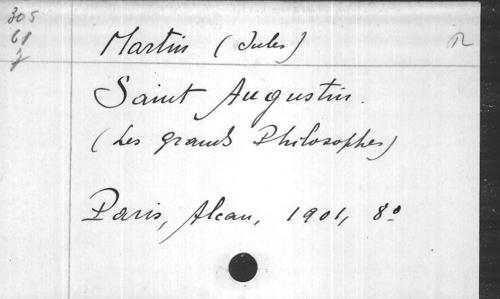 305
61
Martin (Jules)
Saint Augustin.
(Les grands Philosophes)
Paris, Alcan, 1901, 8º